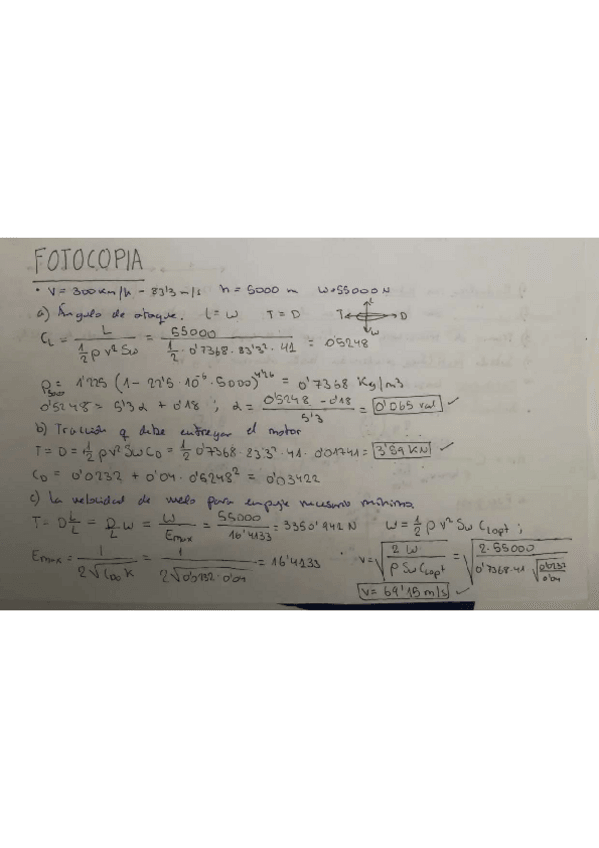 FOTOCOPIA
· V = 300 Km/h - 83'3 m/s h = 5000 m W=55000 N
a) Ángulo de ataque. L = W T = D
L
T D
W
C_L = L / (1/2 ρ v² Sw) = 55000 / (1/2 · 0'7368 · 83'3² · 41) = 0'5248
ρ5000 = 1'225 (1 - 22'5·10^-6 · 5000)^4'26 = 0'7368 Kg/m3
0'5248 = 5'3 α + 0'18 ; α = (0'5248 - 0'18) / 5'3 = 0'065 rad ✓
b) Tracción q debe entregar el motor
T = D = 1/2 ρ v² Sw C_D = 1/2 0'7368 · 83'3² · 41 · 0'01741 = 3'59 KN ✓
C_D = 0'0232 + 0'04 · 0'5248² = 0'03422
c) La velocidad de vuelo para empuje necesario mínimo
T = D L/L = D/L W = W/Emax = 55000 / 16'4133 = 3350'942 N W = 1/2 ρ v² Sw C_Lopt ;
Emax = 1 / (2√(C_D0 K)) = 1 / (2√(0'0232 · 0'04)) = 16'4133 · v = √(2 W / (ρ Sw C_Lopt)) = √(2·55000 / (0'7368 · 41 · √(0'0232 / 0'04)))
v = 69'15 m/s ✓